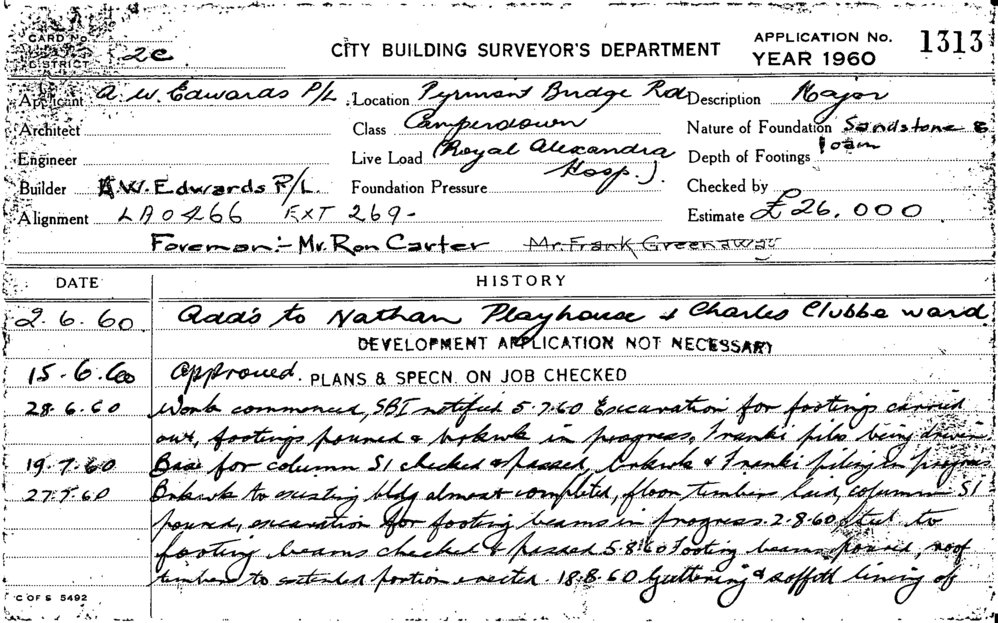 CARD No.
DISTRICT 2C
CITY BUILDING SURVEYOR'S DEPARTMENT
APPLICATION No. 1313
YEAR 1960
Applicant A. W. Edwards P/L
Location Pyrmont Bridge Rd
Description Major
Architect
Class Camperdown
Nature of Foundation Sandstone & loam
Engineer
Live Load (Royal Alexandra Hosp.)
Depth of Footings
Builder A.W. Edwards P/L.
Foundation Pressure
Checked by
Alignment LA0466 EXT 269-
Estimate £26.000
Foreman:- Mr. Ron Carter Mr. Frank Greenaway
DATE HISTORY
2.6.60. Add's to Nathan Playhouse & Charles Clubbe ward.
DEVELOPMENT APPLICATION NOT NECESSARY
15.6.60 Approved. PLANS & SPECN. ON JOB CHECKED
28.6.60 Work commenced, SBI notified 5.7.60 Excavation for footings carried
out, footings poured & brkwk in progress, Franki piles being driven
19.7.60 Base for column S1 checked & passed, brkwk & Franki piling in progress
27.7.60 Brkwk to existing bldg almost completed, floor timbers laid, column S1
poured, excavation for footing beams in progress. 2.8.60 Steel to
footing beams checked & passed 5.8.60 Footing beams poured, roof
timbers to extended portion erected. 18.8.60 Guttering & soffit lining of
C OF S 5492